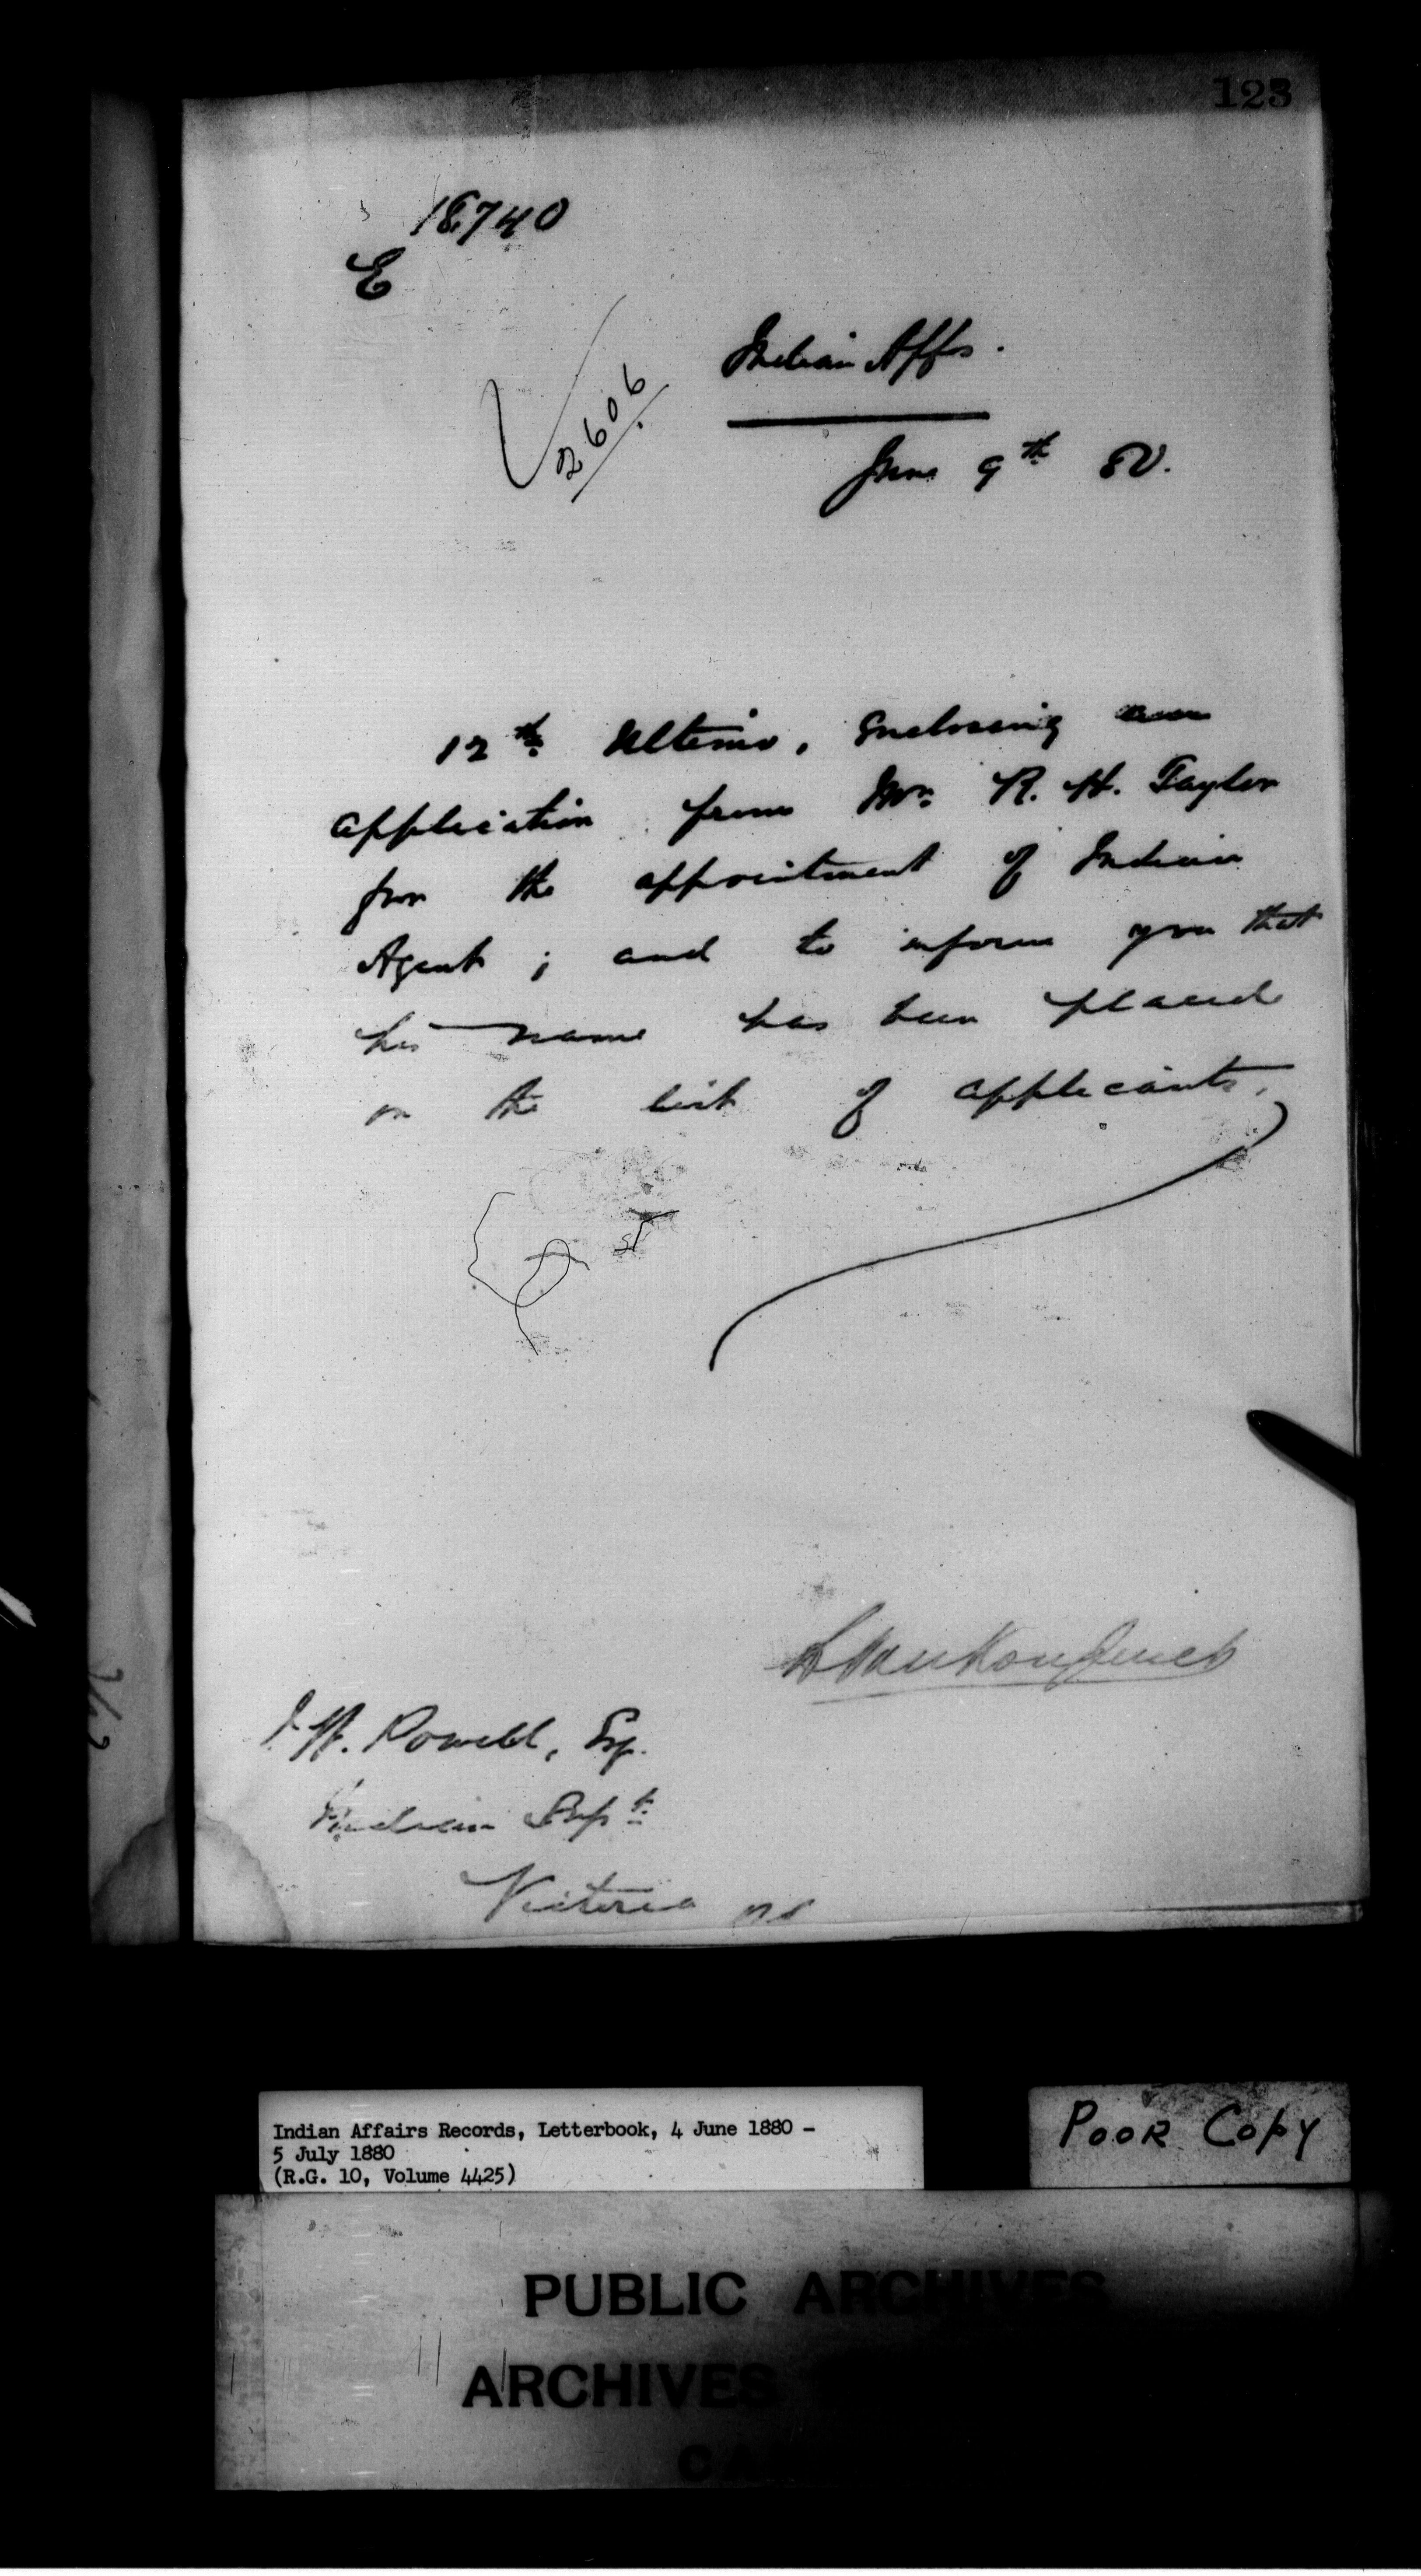 123
18740
E
2606
Indian Affs.
June 9th 80.
12th Ultimo, Enclosing an
application from Mr. R. H. Taylor
for the appointment of Indian
Agent; and to inform you that
his name has been placed
on the list of applicants.
L Vankoughnet
I. W. Powell, Esq.
Indian Supt.
Victoria BC
Indian Affairs Records, Letterbook, 4 June 1880 -
5 July 1880
(R.G. 10, Volume 4425)
POOR COPY
PUBLIC ARCHIVES
ARCHIVES
CA